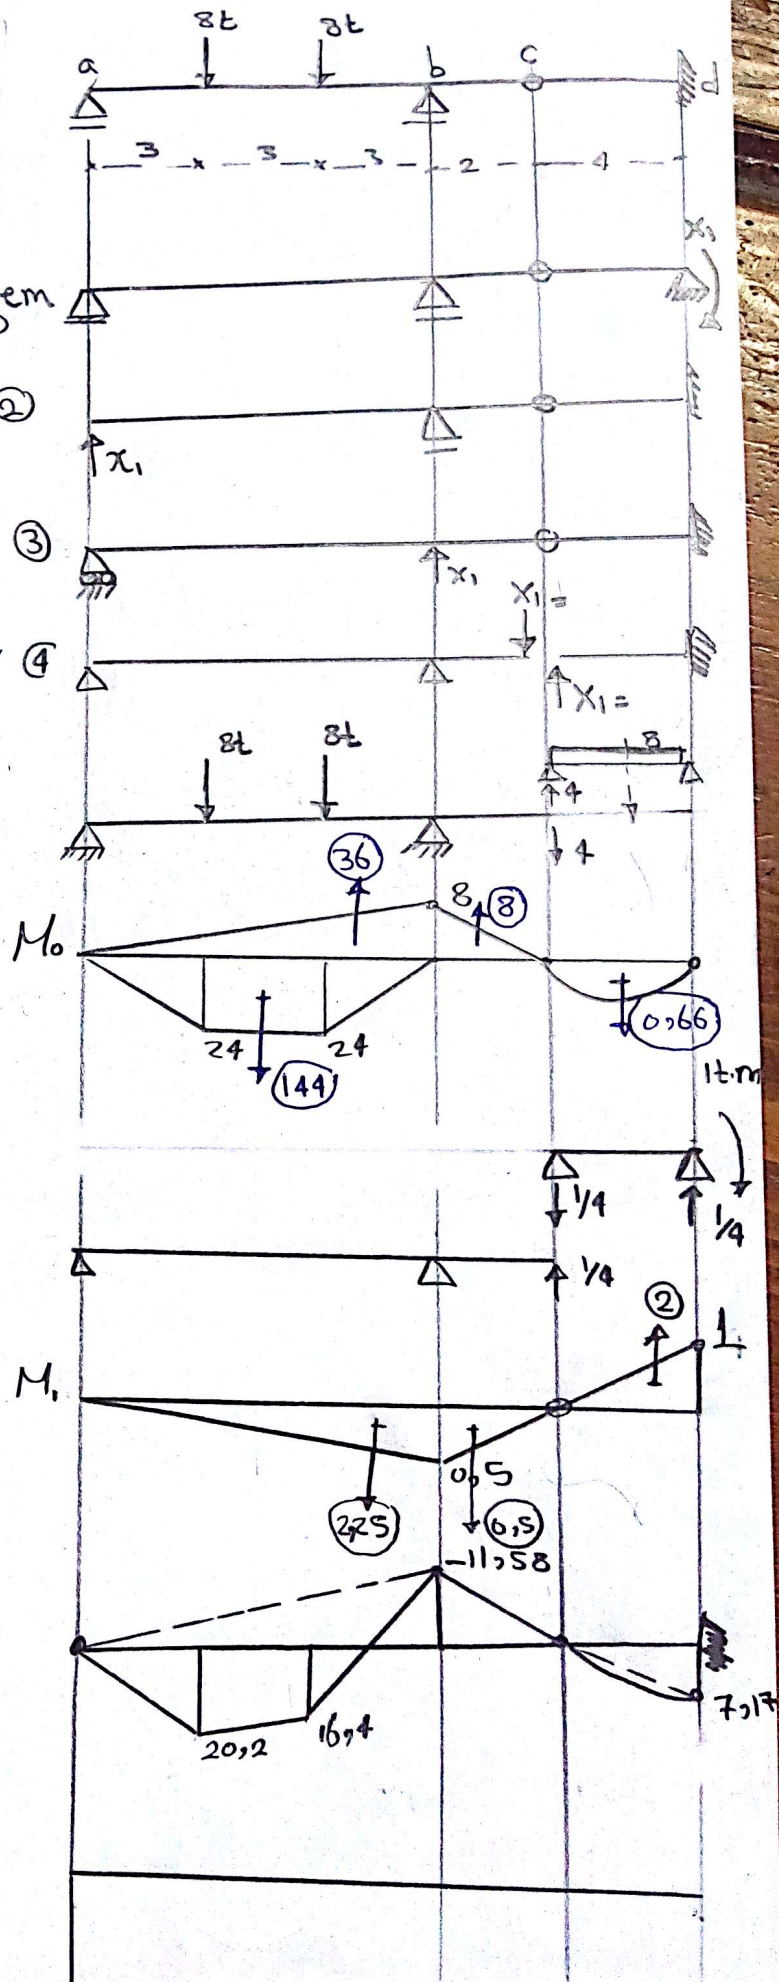 8t 8t
a b c d
3 3 3 2 4
X₁
em
②
x₁
③
x₁
X₁=
④
X₁=
8
8t 8t
4
4
36
8 8
M₀
0,66
24 24
144
1t.m
1/4 1/4
1/4
2
1
M₁
0,5
2,25 0,5
-11,58
7,17
20,2 16,4